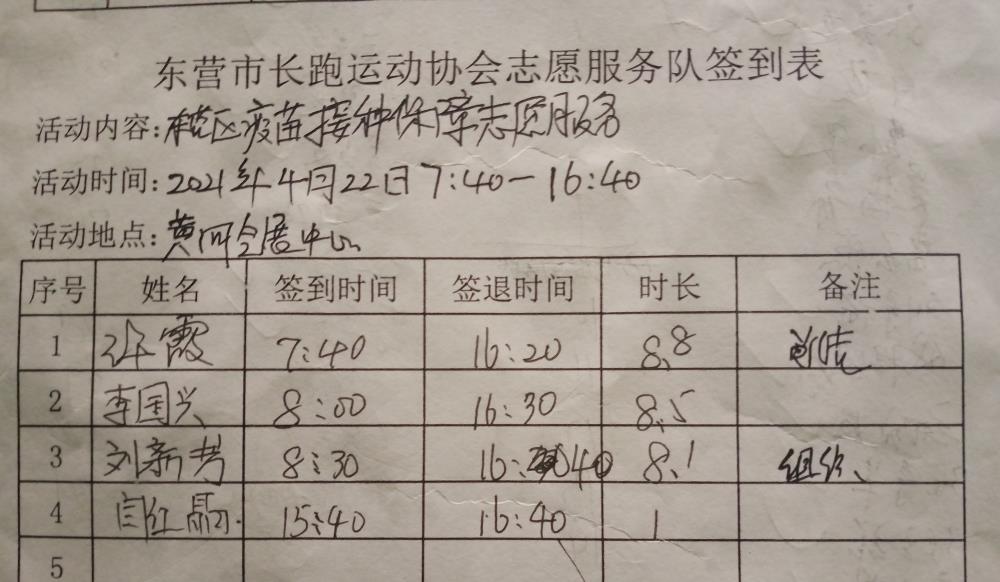 东营市长跑运动协会志愿服务队签到表
活动内容:辖区疫苗接种保障志愿服务
活动时间:2021年4月22日7:40-16:40
活动地点:黄河会展中心
序号 姓名 签到时间 签退时间 时长 备注
1 许霞 7:40 16:20 8.8
2 李国兴 8:00 16:30 8.5
3 刘新芳 8:30 16:40 8.1 组织
4 闫红晶 15:40 16:40 1
5